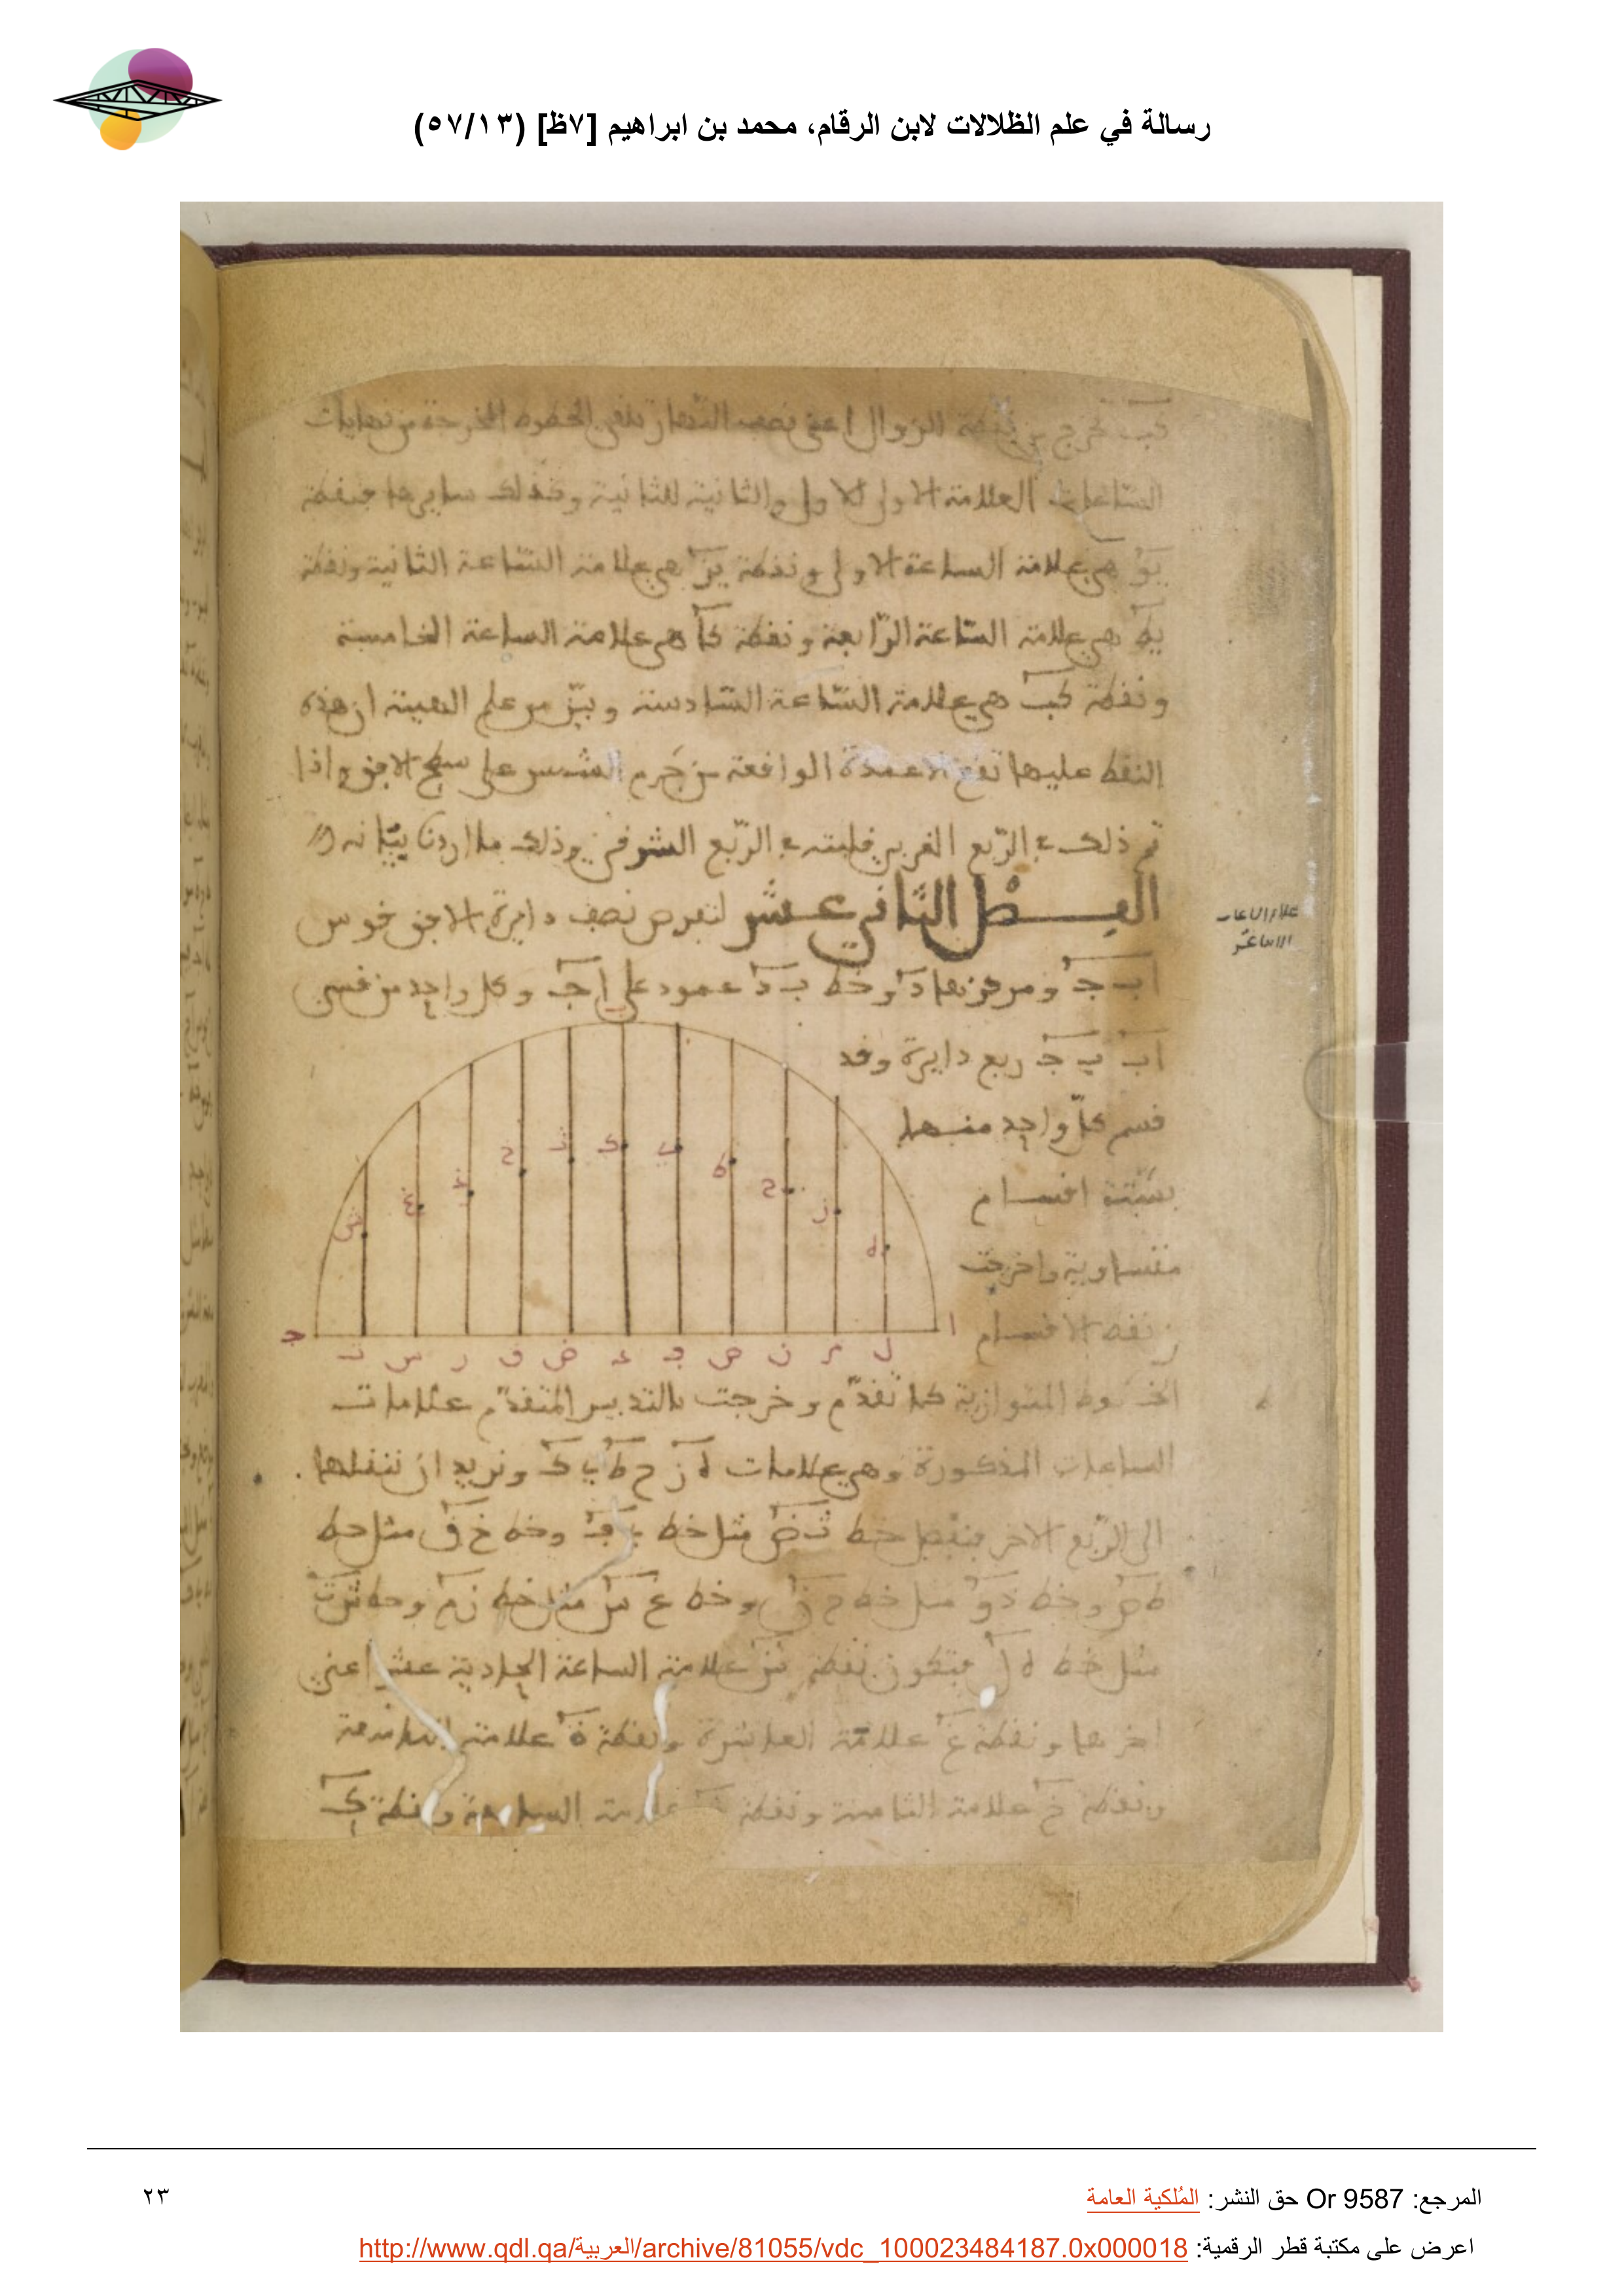 رسالة في علم الظلالات لابن الرقام، محمد بن ابراهيم [٧ظ] (٥٧/١٣)
نقطة الزوال اعنى نصف النهار تلقى الخطوط المخرجة من نهايات
الساعات العلامة الاولى للاولى والثانية للثانية وكذلك سايرها فنقطة
يو هي علامة الساعة الاولى ونقطة يز هي علامة الساعة الثانية ونقطة
يط هي علامة الساعة الرابعة ونقطة كا هي علامة الساعة الخامسة
ونقطة كب هي علامة الساعة السادسة وبين من علم الهيئة ان هذه
النقط عليها تقع الاعمدة الواقعة من جرم الشمس على سطح الافق واذا
تم ذلك في الربع الغربي فليته في الربع الشرفي وذلك ما اردنا بيانه
الفصل الثاني عشر لنعرض نصف دايرة الافق قوس
ا ب ج ومركزها د وخط ب د عمود على ا ج وكل واحد من قسي
ا ب ب ج ربع دايرة وقد
قسم كل واحد منها
بستة اقسام
متساوية واخرجت
الاقسام
ث خ ذ غ ش
ك ي ط ح ز ه
ا ج
ل م ن ص ف ع ض ق ر س ت
الخطوط المتوازية كما تقدم وخرجت بالتدبير المتقدم علامات
الساعات المذكورة وهي علامات ه ز ح ط ي ك ونريد ان ننقلها
الى الربع الاخر فنفصل خط ث ض مثل خط ي ف وخط خ ق مثل خط
ط ص وخط ذ ر مثل خط ح ن وخط غ س مثل خط ز م وخط ش ت
مثل خط ه ل فتكون نقطة ش علامة الساعة الحادية عشر اعني
اخرها ونقطة غ علامة العاشرة ونقطة ذ علامة التاسعة
ونقطة خ علامة الثامنة ونقطة علامة السابعة ونقطة ك
المرجع: Or 9587 حق النشر: المُلكية العامة
٢٣
اعرض على مكتبة قطر الرقمية: http://www.qdl.qa/العربية/archive/81055/vdc_100023484187.0x000018